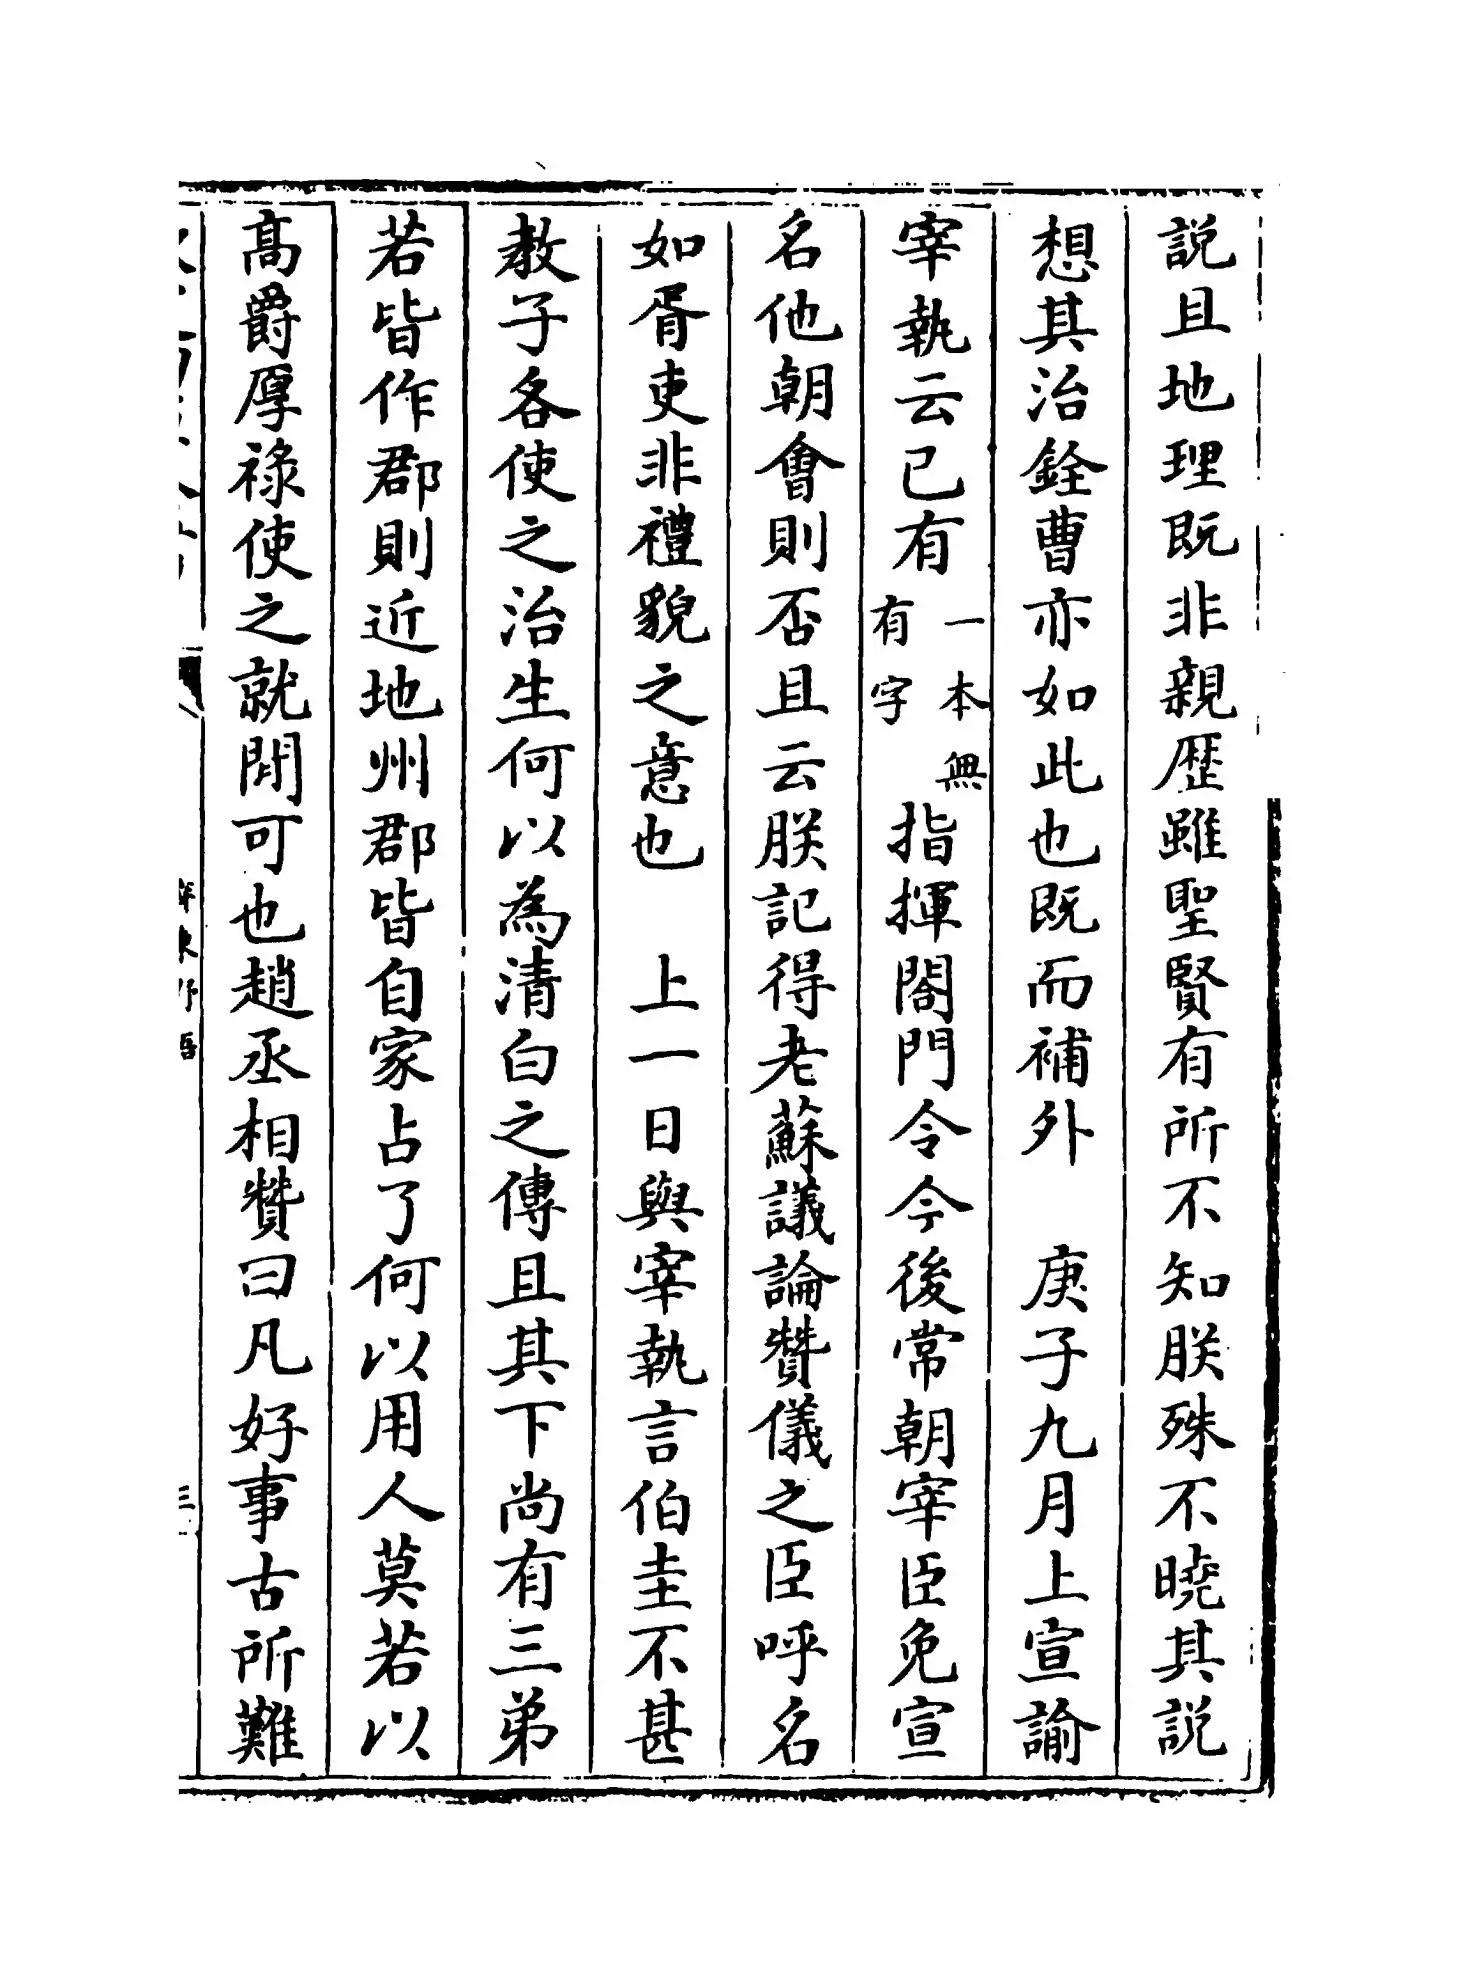 説且地理既非親歷雖聖賢有所不知朕殊不曉其説
想其治銓曹亦如此也既而補外　庚子九月上宣諭
宰執云已有一本無有字指揮閤門令今後常朝宰臣免宣
名他朝會則否且云朕記得老蘇議論贊儀之臣呼名
如胥吏非禮貌之意也　上一日與宰執言伯圭不甚
教子各使之治生何以為清白之傳且其下尚有三弟
若皆作郡則近地州郡皆自家占了何以用人莫若以
高爵厚祿使之就閒可也趙丞相贊曰凡好事古所難
齊東野語
三